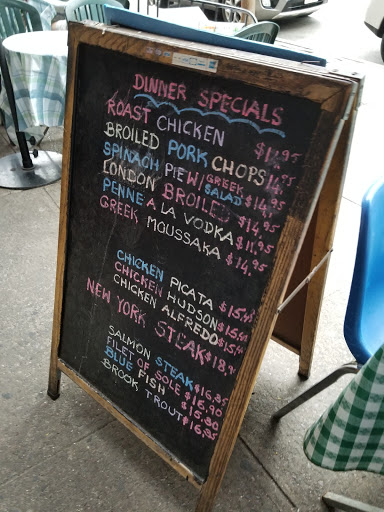 DINNER SPECIALS
ROAST CHICKEN $11.95
BROILED PORK CHOPS 14.95
SPINACH PIE W/ GREEK SALAD $14.95
LONDON BROILED $14.95
PENNE A LA VODKA $11.95
GREEK MOUSSAKA $14.95
CHICKEN PICATA
CHICKEN HUDSON
CHICKEN ALFREDO
NEW YORK STEAK
SALMON STEAK $16.95
FILET OF SOLE $16.90
BLUE FISH $15.90
BROOK TROUT $16.95